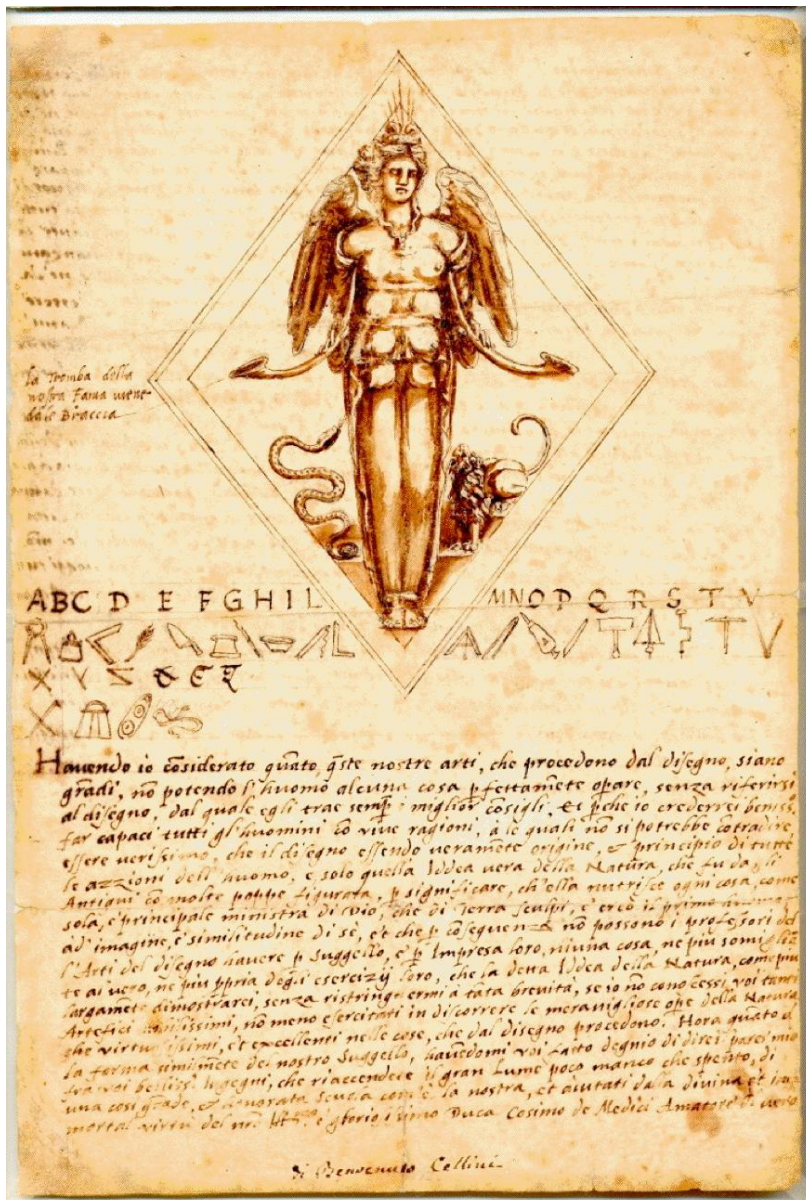 la Tremba della
nostra Fama viene
dale Braccia
ABC D E F G H I L MNO P Q R S T V
X Y Z & E
Havendo io cõsiderato quãto, q̃ste nostre arti, che procedono dal disegno, siano
grãdi, nõ potendo l'huomo alcuna cosa ꝑfettamẽte oꝑare, senza riferirsi
al disegno, dal quale egli trae semp̃ i miglior, cõsigli. Et ꝑche io crederrei beniss.
far capaci tutti gl'huomini cõ vive ragioni, à le quali nõ si potrebbe cõtradire,
essere verissimo, che il disegno essendo veramẽte origine, e principio di tutte
le azzioni dell'huomo, e solo quella Iddea vera della Natura, che fu dagli
Antiqui cõ molte poppe figurata, ꝑ significare, ch'ella nutrisce ogni cosa, come
sola, e principale ministra di Dio, che di Terra sculpi, e creò il primo
ad' imagine, e similitudine di sè, et che ꝑ cõseguenza nõ possono i professori del
l'Arti del disegno havere ꝑ Suggello, e ꝑ Impresa loro, niuna cosa, ne piu somigliã
te al vero, ne piu ꝓpria degli esercizij loro, che la detta Iddea della Natura, come piu
largamẽte dimostrarei, senza ristringnermi à tãta brevità, se io nõ conoscessi voi tanti
Artefici, nõ meno esercitati in discorrere le meravigliose oꝑe della Natura
che virtuosissimi, et excellenti nelle cose, che dal disegno procedono. Hora quãto à
la forma similmẽte del nostro Suggello, havẽdomi voi fatto degnio di dire i parer mio
fra voi bellissi Ingegni, che riaccendere il gran lume poco manco che spento, di
una cosi grãde, et honorata scuola com'è la nostra, et aiutati dala divina et im
mortal virtu del nr̃o e glorioissimo Duca Cosimo de Medici Amatore di
di Benvenuto Cellini